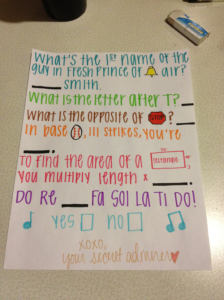 What's the 1st name of the
guy in Fresh Prince of air?
Smith.
What is the letter after T?
What is the opposite of STOP?
In base , 111 strikes, you're
To find the area of a
you multiply length x
DO RE FA SOL LA TI DO!
yes no
xoxo,
your secret admirer